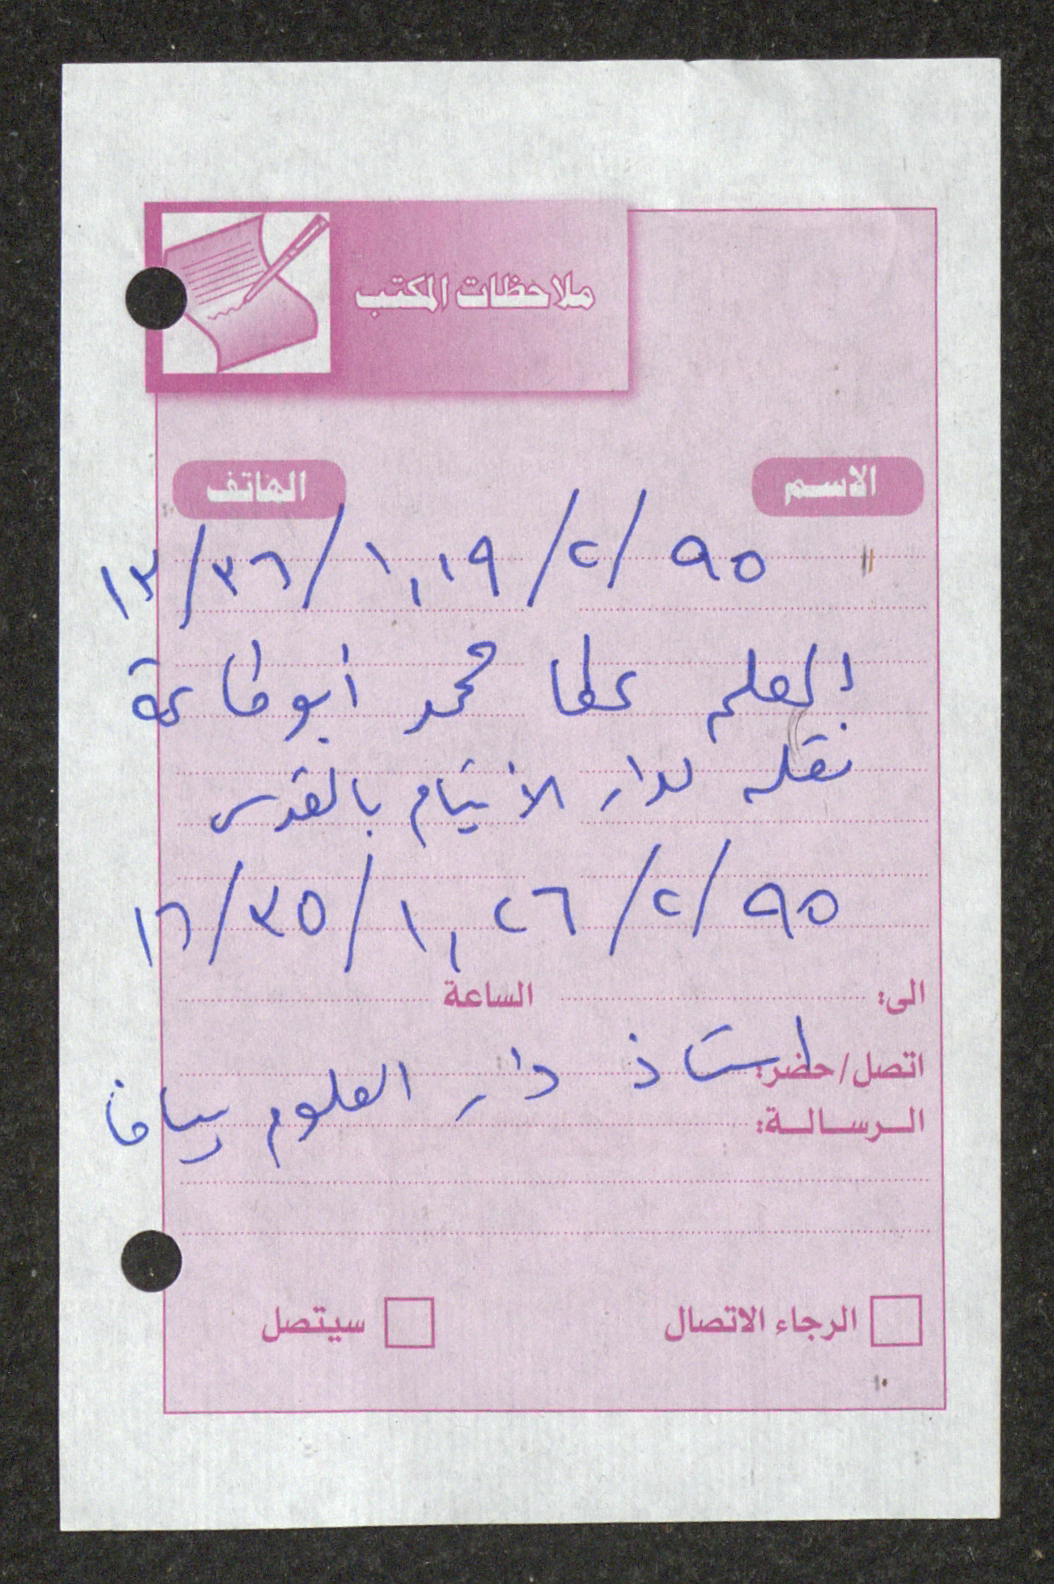 ملاحظات المكتب
الاسم
الهاتف
١٣/٣٦/١,١٩/٢/٩٥
المعلم عطا محمد أبو
نقله لدار الأيتام بالقدس
١٦/٣٥/١,٢٦/٢/٩٥
الى:
الساعة
اتصل/حضر:
استاذ دار العلوم بيافا
الرسالة:
الرجاء الاتصال
سيتصل